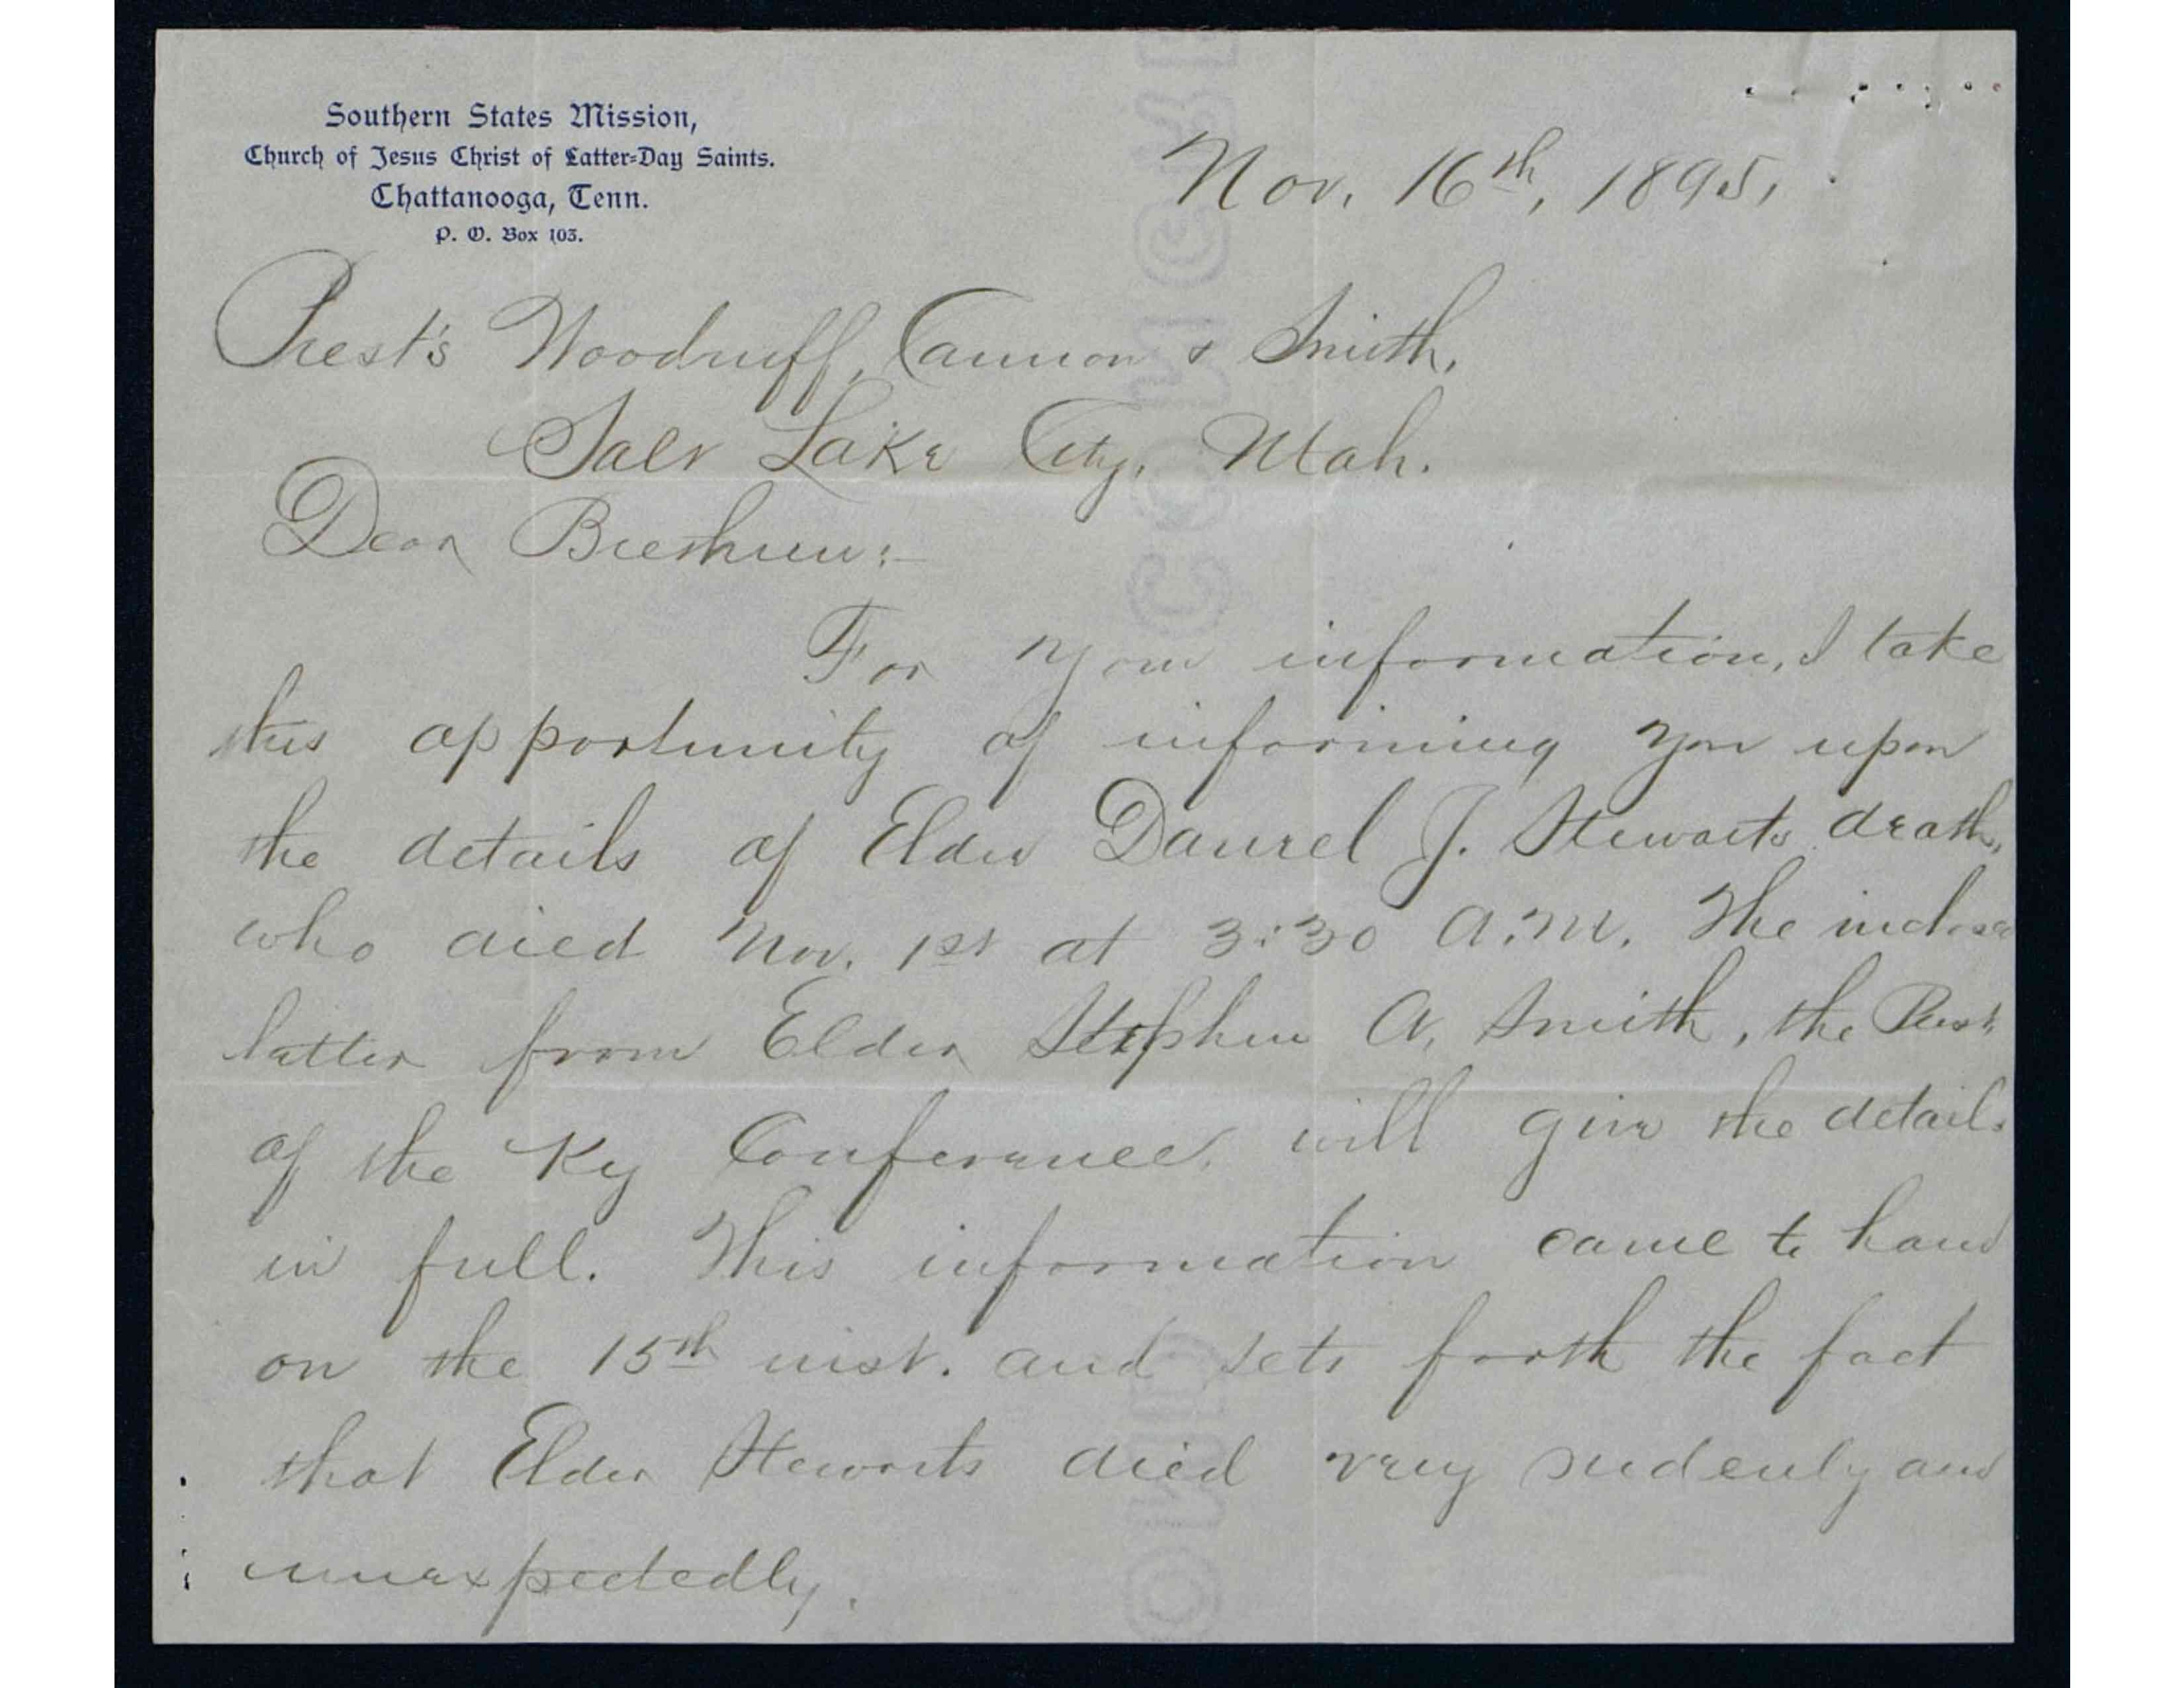 Southern States Mission,
Church of Jesus Christ of Latter-Day Saints.
Chattanooga, Tenn.
P. O. Box 103.
Nov. 16th, 1895,
Prest's Woodruff, Cannon & Smith,
Salt Lake City, Utah.
Dear Brethren:—
For your information, I take
this opportunity of informing you upon
the details of Elder Daniel J. Stewarts death,
who died Nov. 1st at 3:30 A.M. The inclosed
letter from Elder Stephen A. Smith, the Prest
of the Ky Conference, will give the details
in full. This information came to hand
on the 15th inst. and sets forth the fact
that Elder Stewarts died very sudenly and
unexpectedly.